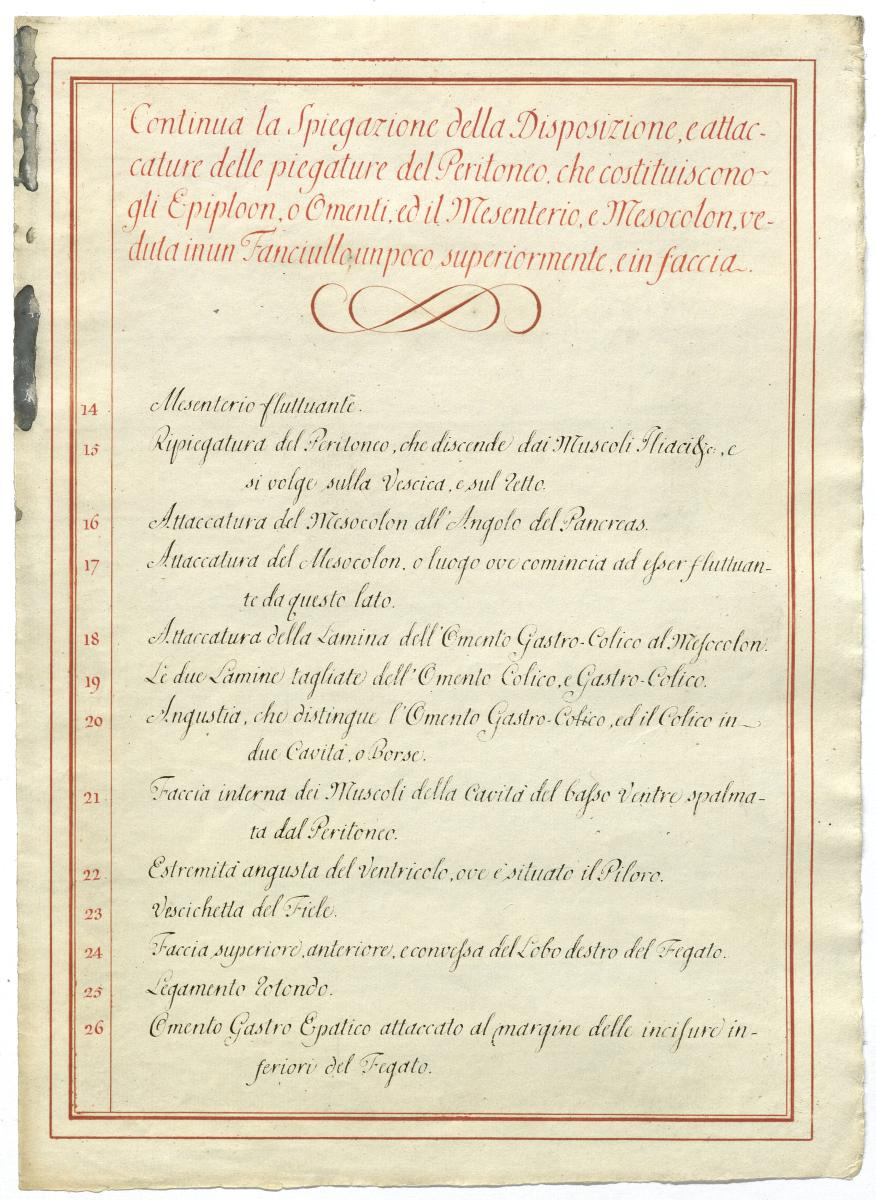 Continua la Spiegazione della Disposizione, e attac-
cature delle piegature del Peritoneo, che costituiscono
gli Epiploon, o Omenti, ed il Mesenterio, e Mesocolon, ve-
duta in un Fanciullo un poco superiormente, e in faccia.
14 Mesenterio fluttuante.
15 Ripiegatura del Peritoneo, che discende dai Muscoli Iliaci &c:, e
si volge sulla Vescica, e sul retto.
16 Attaccatura del Mesocolon all'Angolo del Pancreas.
17 Attaccatura del Mesocolon, o luogo ove comincia ad eſser fluttuan-
te da questo lato.
18 Attaccatura della Lamina dell'Omento Gastro-Colico al Meſocolon.
19 Le due Lamine tagliate dell'Omento Colico, e Gastro-Colico.
20 Angustia, che distingue l'Omento Gastro-Colico, ed il Colico in
due Cavità, o Borse.
21 Faccia interna dei Muscoli della Cavità del baſso Ventre spalma-
ta dal Peritoneo.
22 Estremità angusta del Ventricolo, ove è situato il Piloro.
23 Vescichetta del Fiele.
24 Faccia superiore, anteriore, e conveſsa del Lobo destro del Fegato.
25 Legamento rotondo.
26 Omento Gastro Epatico attaccato al margine delle inciſure in-
feriori del Fegato.